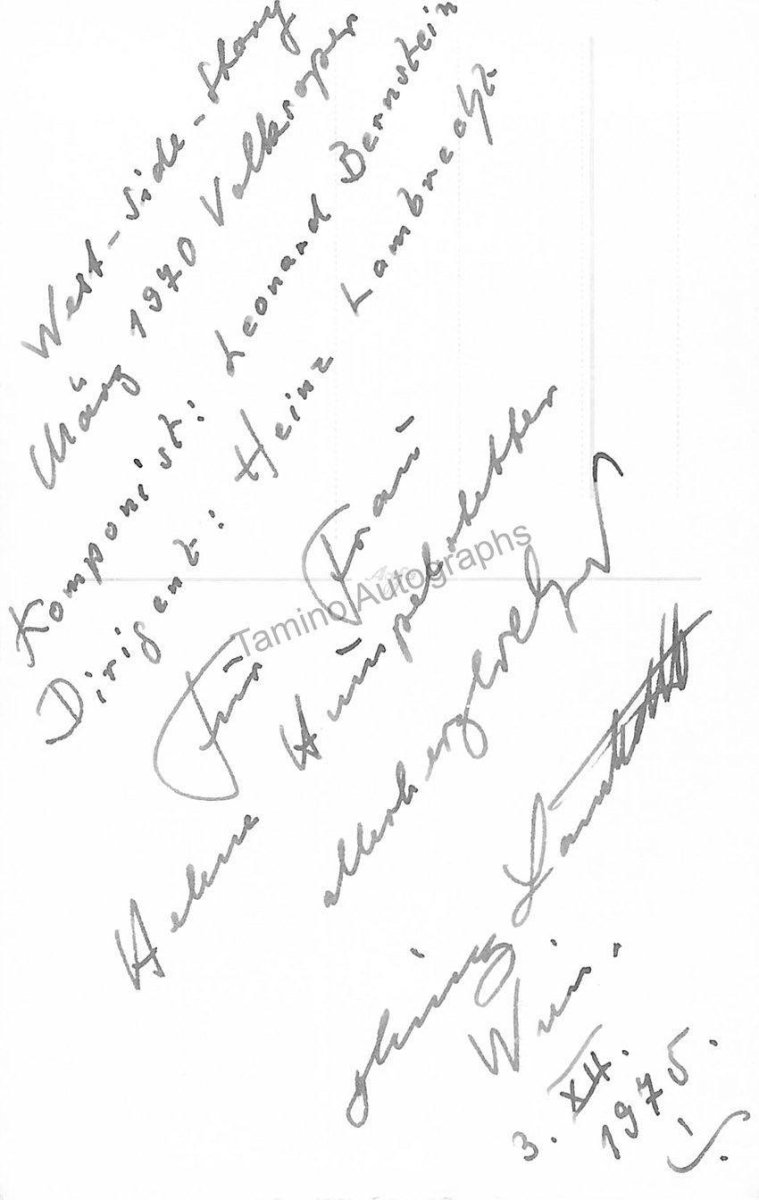 West-Side-Story
März 1970 Volksoper
Komponist: Leonard Bernstein
Dirigent: Heinz Lambrecht
Für Frau
Helene Hümpelstetter
allerherzlichst
Heinz Lambrecht
Wien.
3. XII.
1975.
Tamino Autographs